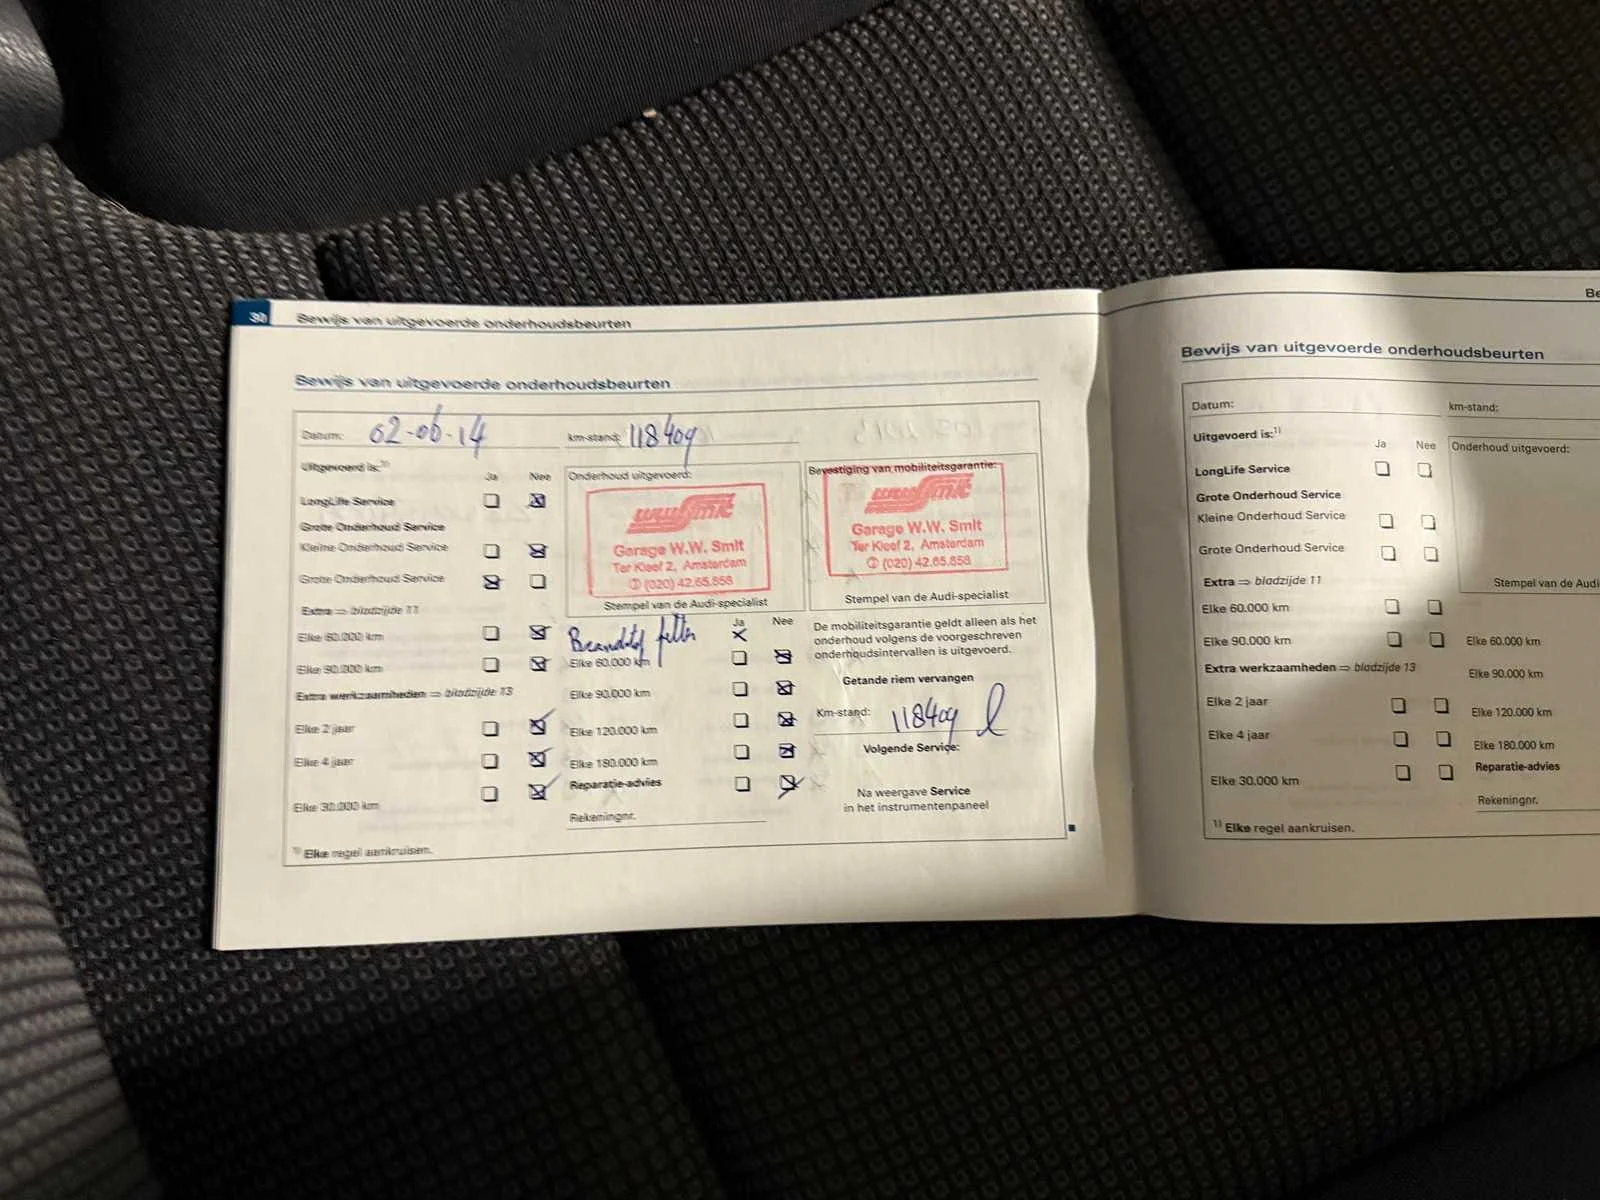 30 Bewijs van uitgevoerde onderhoudsbeurten
Bewijs van uitgevoerde onderhoudsbeurten
Datum: 02-06-14 km-stand: 118409
Uitgevoerd is:¹⁾
Ja Nee
LongLife Service
Grote Onderhoud Service
Kleine Onderhoud Service
Grote Onderhoud Service
Extra ⇒ bladzijde 11
Elke 60.000 km
Elke 90.000 km
Extra werkzaamheden ⇒ bladzijde 13
Elke 2 jaar
Elke 4 jaar
Elke 30.000 km
¹⁾ Elke regel aankruisen.
Onderhoud uitgevoerd:
WW Smit
Garage W.W. Smit
Ter Kleef 2, Amsterdam
✆ (020) 42.65.858
Stempel van de Audi-specialist
Ja Nee
Brandstof filter
Elke 60.000 km
Elke 90.000 km
Elke 120.000 km
Elke 180.000 km
Reparatie-advies
Rekeningnr.
Bevestiging van mobiliteitsgarantie:
WW Smit
Garage W.W. Smit
Ter Kleef 2, Amsterdam
✆ (020) 42.65.858
Stempel van de Audi-specialist
De mobiliteitsgarantie geldt alleen als het
onderhoud volgens de voorgeschreven
onderhoudsintervallen is uitgevoerd.
Getande riem vervangen
Km-stand: 118409
Volgende Service:
Na weergave Service
in het instrumentenpaneel
Be
Bewijs van uitgevoerde onderhoudsbeurten
Datum: km-stand:
Uitgevoerd is:¹⁾
Ja Nee
LongLife Service
Grote Onderhoud Service
Kleine Onderhoud Service
Grote Onderhoud Service
Extra ⇒ bladzijde 11
Elke 60.000 km
Elke 90.000 km
Extra werkzaamheden ⇒ bladzijde 13
Elke 2 jaar
Elke 4 jaar
Elke 30.000 km
¹⁾ Elke regel aankruisen.
Onderhoud uitgevoerd:
Stempel van de Audi
Elke 60.000 km
Elke 90.000 km
Elke 120.000 km
Elke 180.000 km
Reparatie-advies
Rekeningnr.